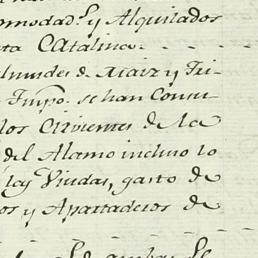 omodad.s y Alquilados
ta Catalina
lmudes de Maiz y Tri
Tiempo se han Consu
los Sirvientes de la
del Alamo incluso lo
las Viudas, gasto de
os y Apartaderos de